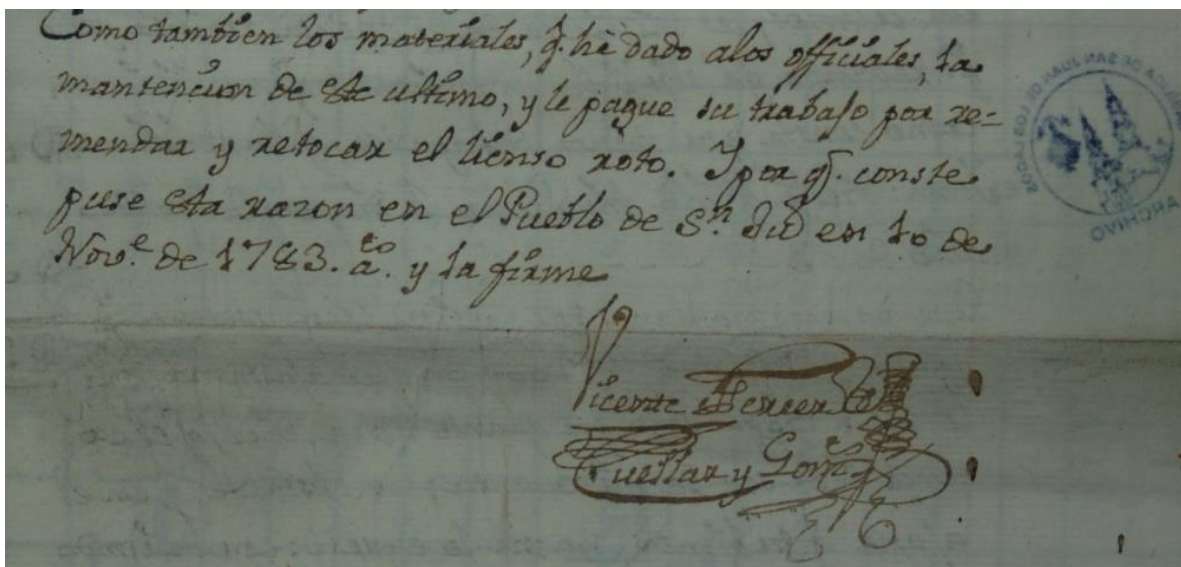 Como tambien los materiales, q. he dado alos officiales, la
mantencion de este ultimo, y le pague su trabajo por re=
mendar y retocar el lienso roto. Y por q. conste
puse esta razon en el Pueblo de Sn. en 10 de
Nov.e de 1783. a.o y la firme
Vicente
Cuellar y Gom.s
ARCHIVO
DE SAN JUAN DE LOS LAGOS